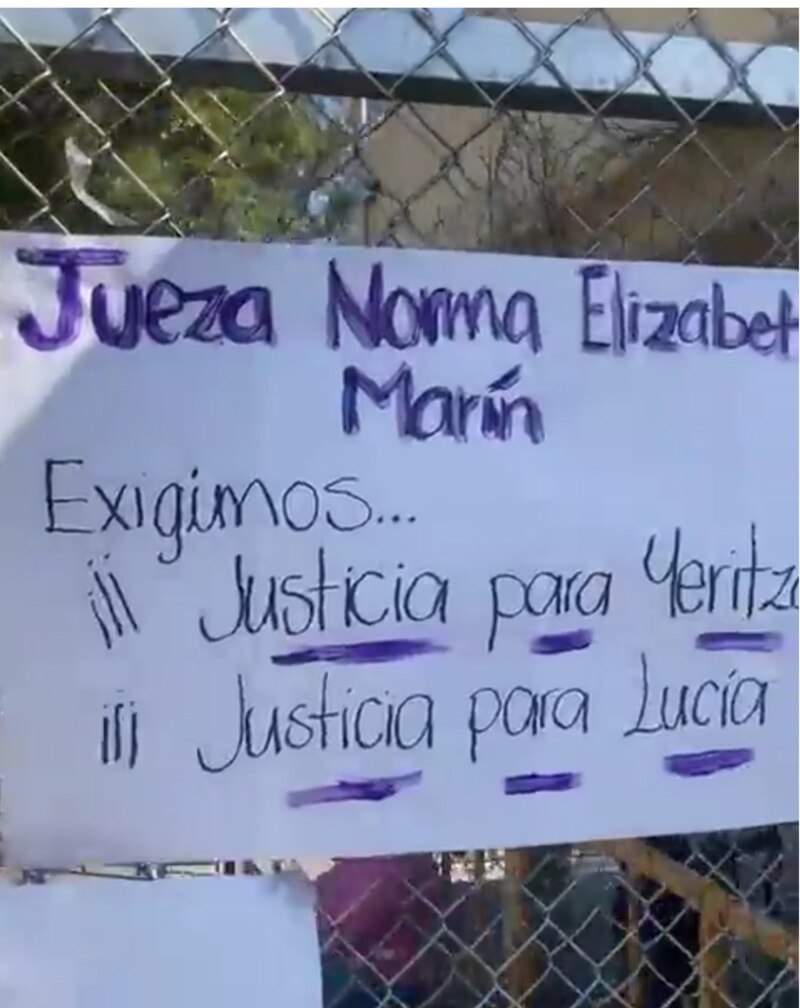 Jueza Norma Elizabet
Marín
Exigimos...
¡¡¡ Justicia para Yeritza
¡¡¡ Justicia para Lucía